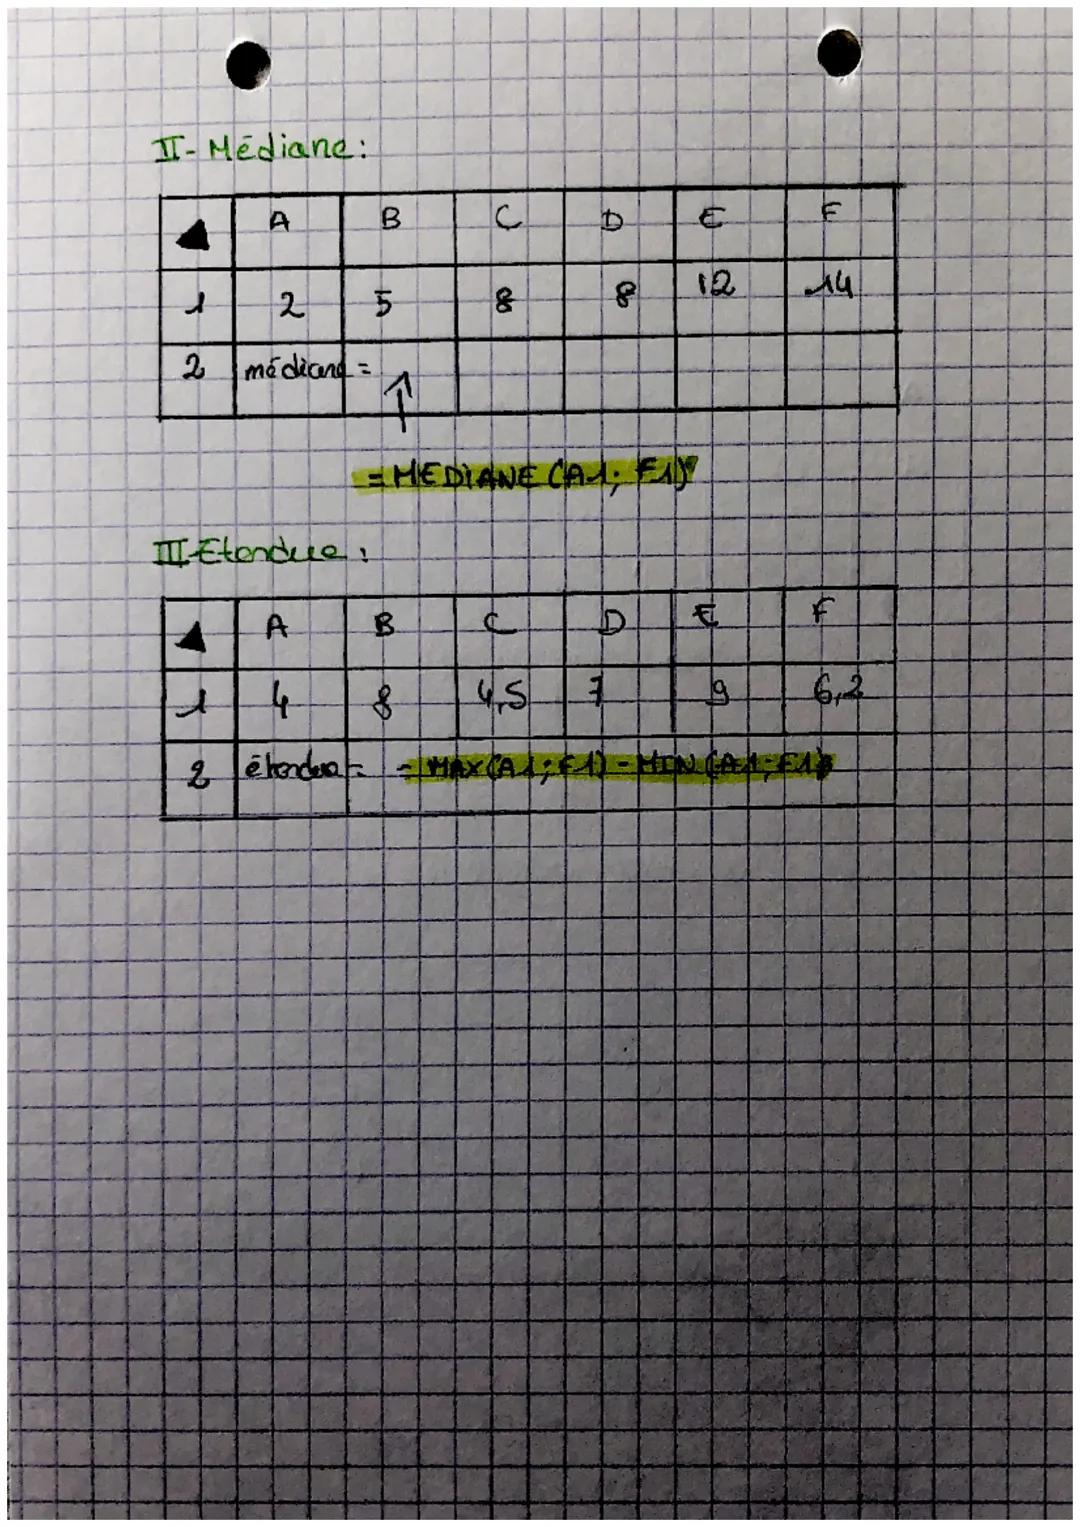 II- Médiane:
A B C D E F
1 2 5 8 8 12 14
2 médiane =
= MEDIANE (A1; F1)
III- Etendue :
A B C D E F
1 4 8 4,5 7 9 6,2
2 étendue = = MAX(A1;F1) - MIN (A1;F1)